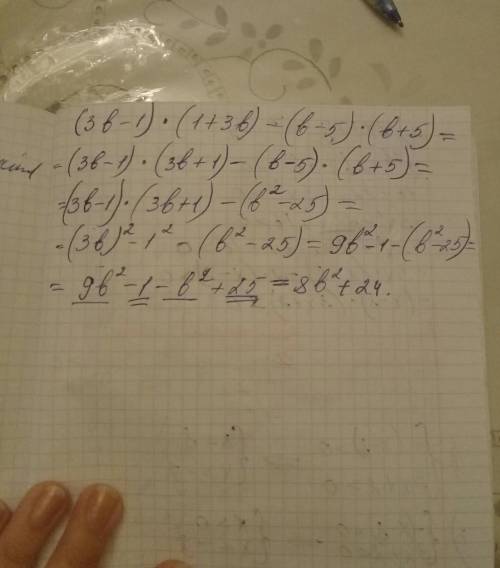 (3b-1)·(1+3b)-(b-5)·(b+5)=
=(3b-1)·(3b+1)-(b-5)·(b+5)=
=(3b-1)·(3b+1)-(b²-25)=
=(3b)²-1²-(b²-25)=9b²-1-(b²-25)=
=9b²-1-b²+25=8b²+24.